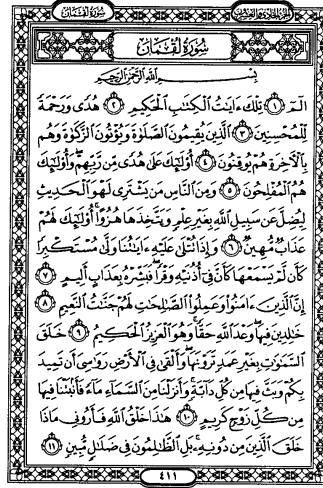 سُورَةُ لُقْمَان
الجزء الحادي والعشرون
سُورَةُ لُقْمَان
بِسْمِ اللَّهِ الرَّحْمَٰنِ الرَّحِيمِ
الٓمٓ ﴿١﴾ تِلْكَ ءَايَٰتُ الْكِتَٰبِ الْحَكِيمِ ﴿٢﴾ هُدًى وَرَحْمَةً
لِّلْمُحْسِنِينَ ﴿٣﴾ الَّذِينَ يُقِيمُونَ الصَّلَوٰةَ وَيُؤْتُونَ الزَّكَوٰةَ وَهُم
بِالْءَاخِرَةِ هُمْ يُوقِنُونَ ﴿٤﴾ أُو۟لَٰٓئِكَ عَلَىٰ هُدًى مِّن رَّبِّهِمْ وَأُو۟لَٰٓئِكَ
هُمُ الْمُفْلِحُونَ ﴿٥﴾ وَمِنَ النَّاسِ مَن يَشْتَرِى لَهْوَ الْحَدِيثِ
لِيُضِلَّ عَن سَبِيلِ اللَّهِ بِغَيْرِ عِلْمٍ وَيَتَّخِذَهَا هُزُوًا أُو۟لَٰٓئِكَ لَهُمْ
عَذَابٌ مُّهِينٌ ﴿٦﴾ وَإِذَا تُتْلَىٰ عَلَيْهِ ءَايَٰتُنَا وَلَّىٰ مُسْتَكْبِرًا
كَأَن لَّمْ يَسْمَعْهَا كَأَنَّ فِىٓ أُذُنَيْهِ وَقْرًا فَبَشِّرْهُ بِعَذَابٍ أَلِيمٍ ﴿٧﴾
إِنَّ الَّذِينَ ءَامَنُوا۟ وَعَمِلُوا۟ الصَّٰلِحَٰتِ لَهُمْ جَنَّٰتُ النَّعِيمِ ﴿٨﴾
خَٰلِدِينَ فِيهَا وَعْدَ اللَّهِ حَقًّا وَهُوَ الْعَزِيزُ الْحَكِيمُ ﴿٩﴾ خَلَقَ
السَّمَٰوَٰتِ بِغَيْرِ عَمَدٍ تَرَوْنَهَا وَأَلْقَىٰ فِى الْأَرْضِ رَوَٰسِىَ أَن تَمِيدَ
بِكُمْ وَبَثَّ فِيهَا مِن كُلِّ دَآبَّةٍ وَأَنزَلْنَا مِنَ السَّمَآءِ مَآءً فَأَنۢبَتْنَا فِيهَا
مِن كُلِّ زَوْجٍ كَرِيمٍ ﴿١٠﴾ هَٰذَا خَلْقُ اللَّهِ فَأَرُونِى مَاذَا
خَلَقَ الَّذِينَ مِن دُونِهِۦ بَلِ الظَّٰلِمُونَ فِى ضَلَٰلٍ مُّبِينٍ ﴿١١﴾
٤١١